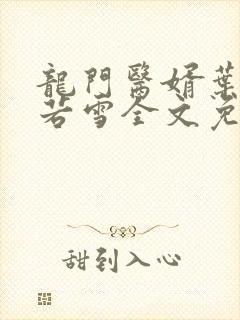 龍門醫婿葉
若雪全文免
甜到入心